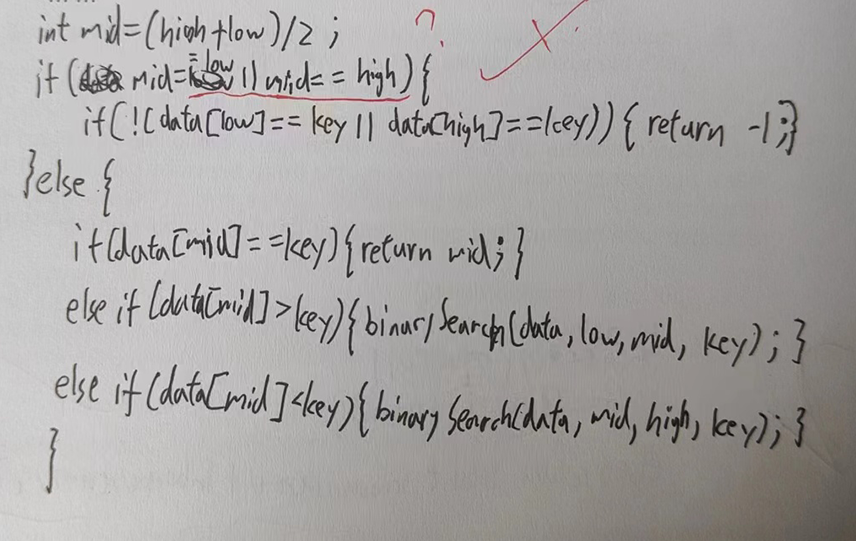 int mid=(high+low)/2 ;
?
if( mid==low || mid== high){
if(!(data[low]== key || data[high]==key)){ return -1;}
}else {
if(data[mid]==key){return mid;}
else if (data[mid]>key){binarySearch(data, low, mid, key);}
else if(data[mid]<key){binarySearch(data, mid, high, key);}
}